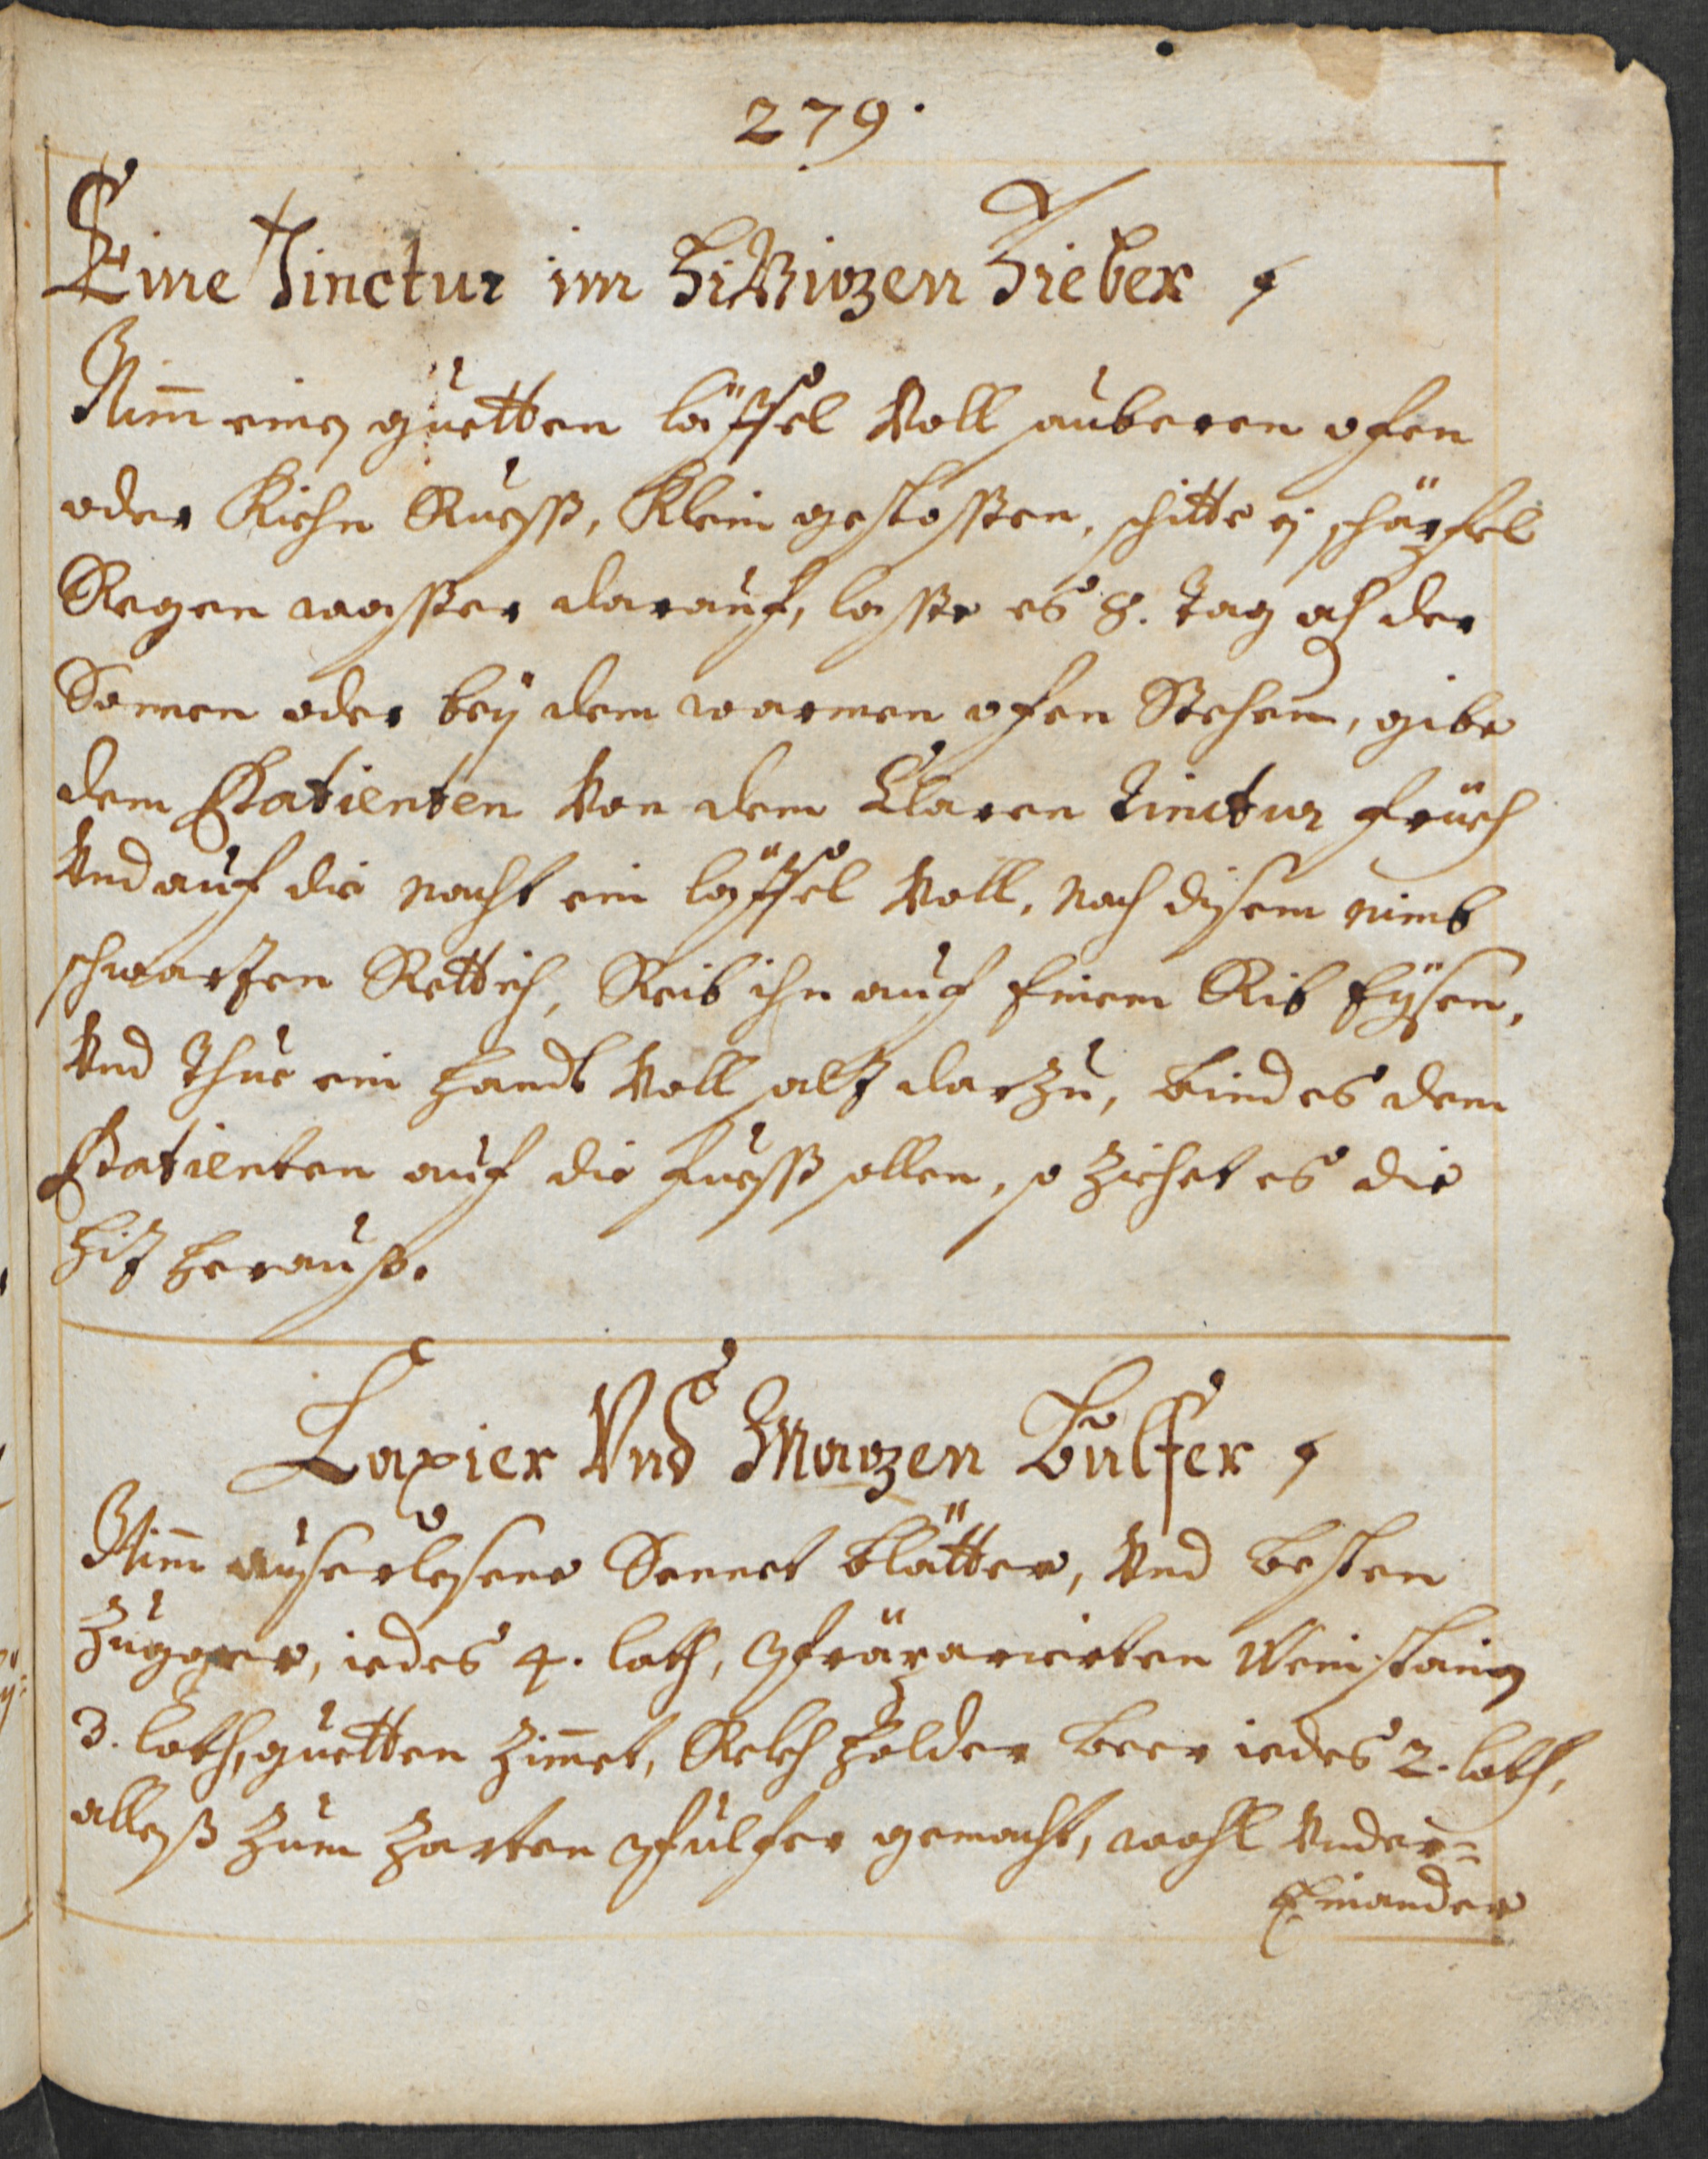 279.
Eine Tinctur im Hitzigen Fieber
Nim̄ einen guetten löffel Voll sauberen ofen
oder Kichn Rueß, Klein gestossen, schitte ein schärfel
Regen wasser darauf, lasse es 8. Tag ah der
Sonnen oder bey dem warmen ofen Stehen, gibe
dem Patienten Von dem Claren Tinctur früeh
Vnd auf die nacht ein löffel Voll, nach disem nimb
schwarzen Rettich, Reib ihn auf Einem Rib Eysen,
Vnd Thue ein handt Voll salz darzu, bind es dem
Patienten auf die fueß sollen, so ziehet es die
hiz herauß.
Laxier Vnd Magen Bulfer
Nim̄ auserlesene Sennet blätter, Vnd besten
Zugger, iedes 4. loth, Pfräparierten Weinstain
3. loth, guetten Zim̄et, Kelch holder beer iedes 2. loth,
alleß zum Zarten Pfulfer gemacht, wohl Vnder=
Einander